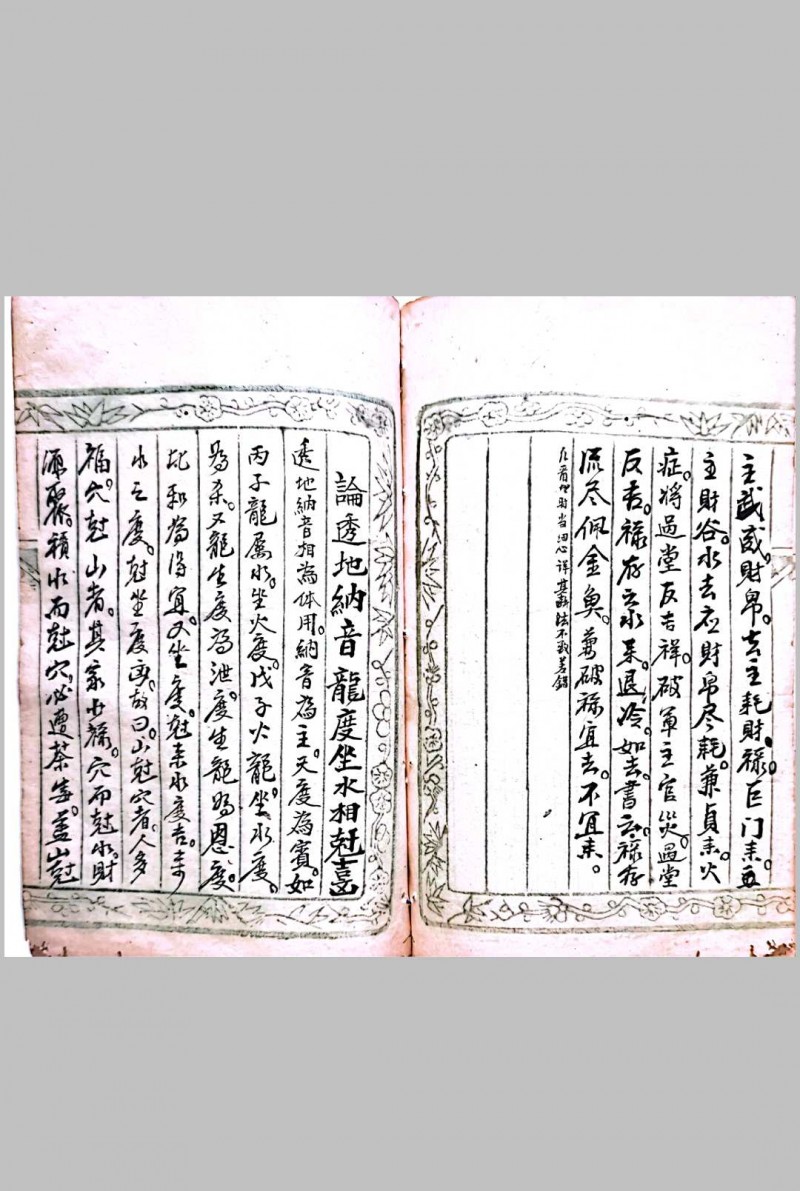 主武威。財帛。去主耗財。祿巨门来
主財谷。水去应財帛尽耗。兼貞来。火
症。將過堂反吉祥。破軍主官災。過堂
反吉。祿存之水来。退冷。如去。書云。祿存
流尽佩金魚。兼破祿宜去。不宜来。
財当田心詳其法不致差錯
論透地納音龍度坐水相尅喜
透地納音相為体用。納音為主。天度為賓。如
丙子龍屬水。坐火度。戊子火龍。坐水度。
為杀。又龍生度為泄。度生龍為恩。度
比和為得宜。又坐度。尅来水度吉。来
水之度。尅坐度凶。故曰。山尅穴者。人多
福。穴尅山者。其家少祿。穴而尅水。財
源聚。積水而尅穴。必遭荼毒。盖山尅